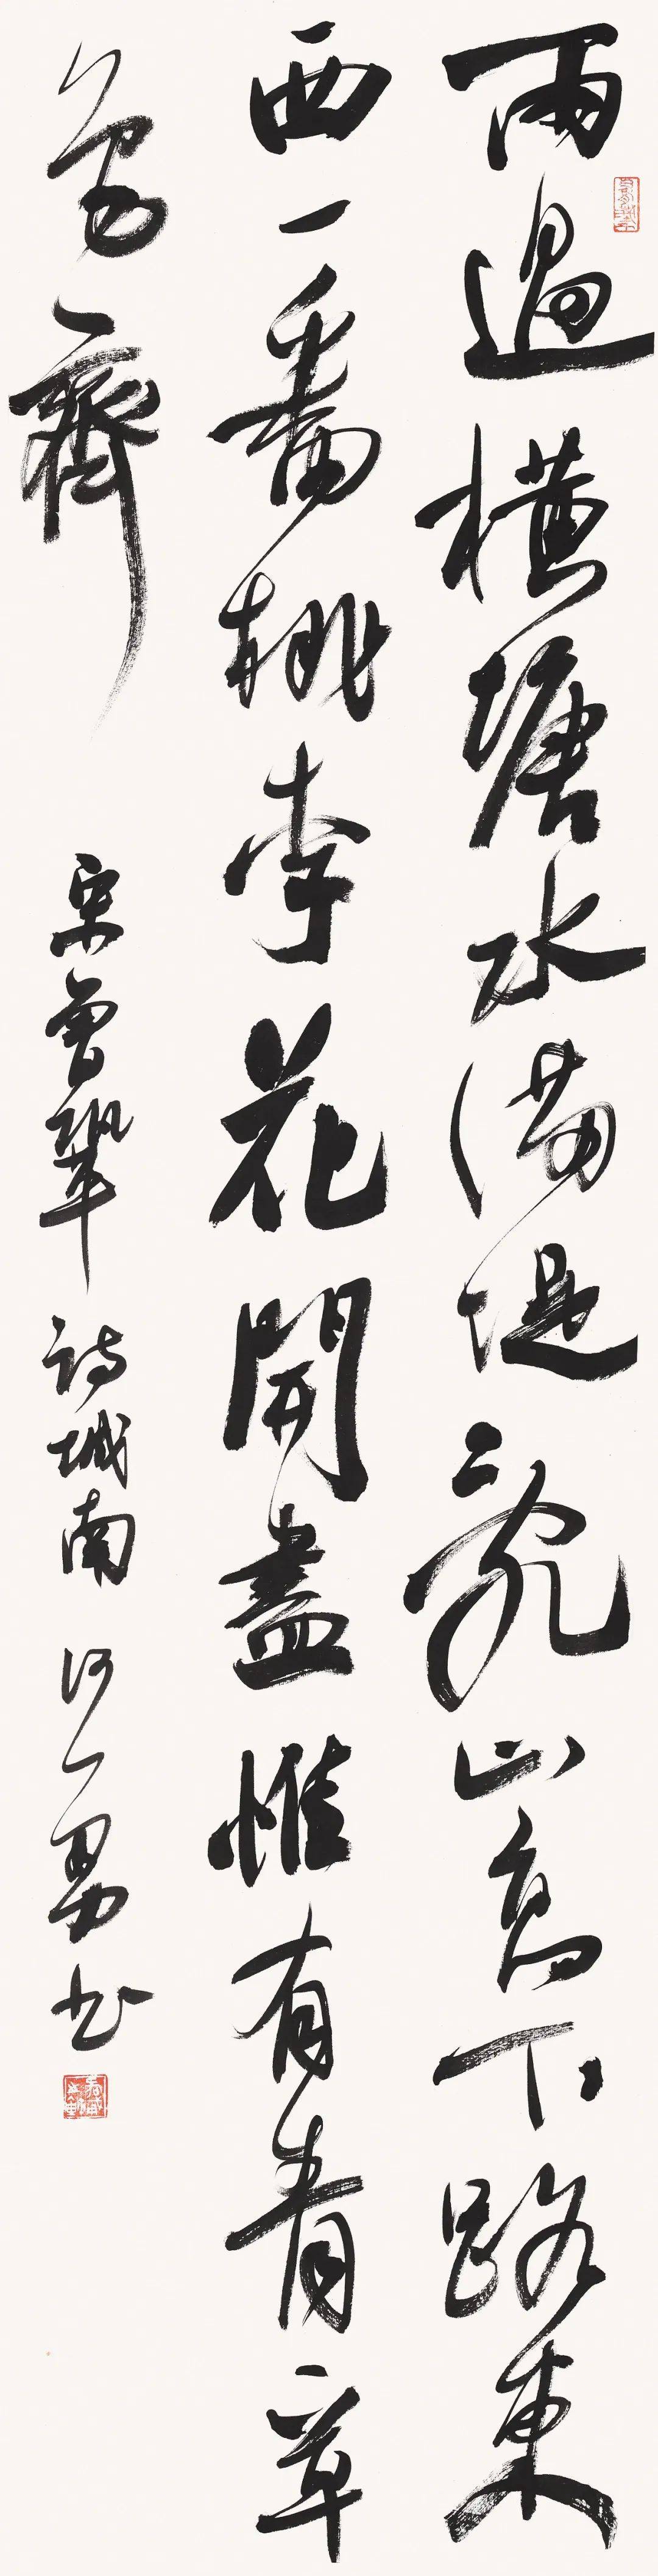 雨過橫塘水滿堤亂山高下路東
西一番桃李花開盡惟有青草
色齊
宋曾鞏詩城南 何一男书